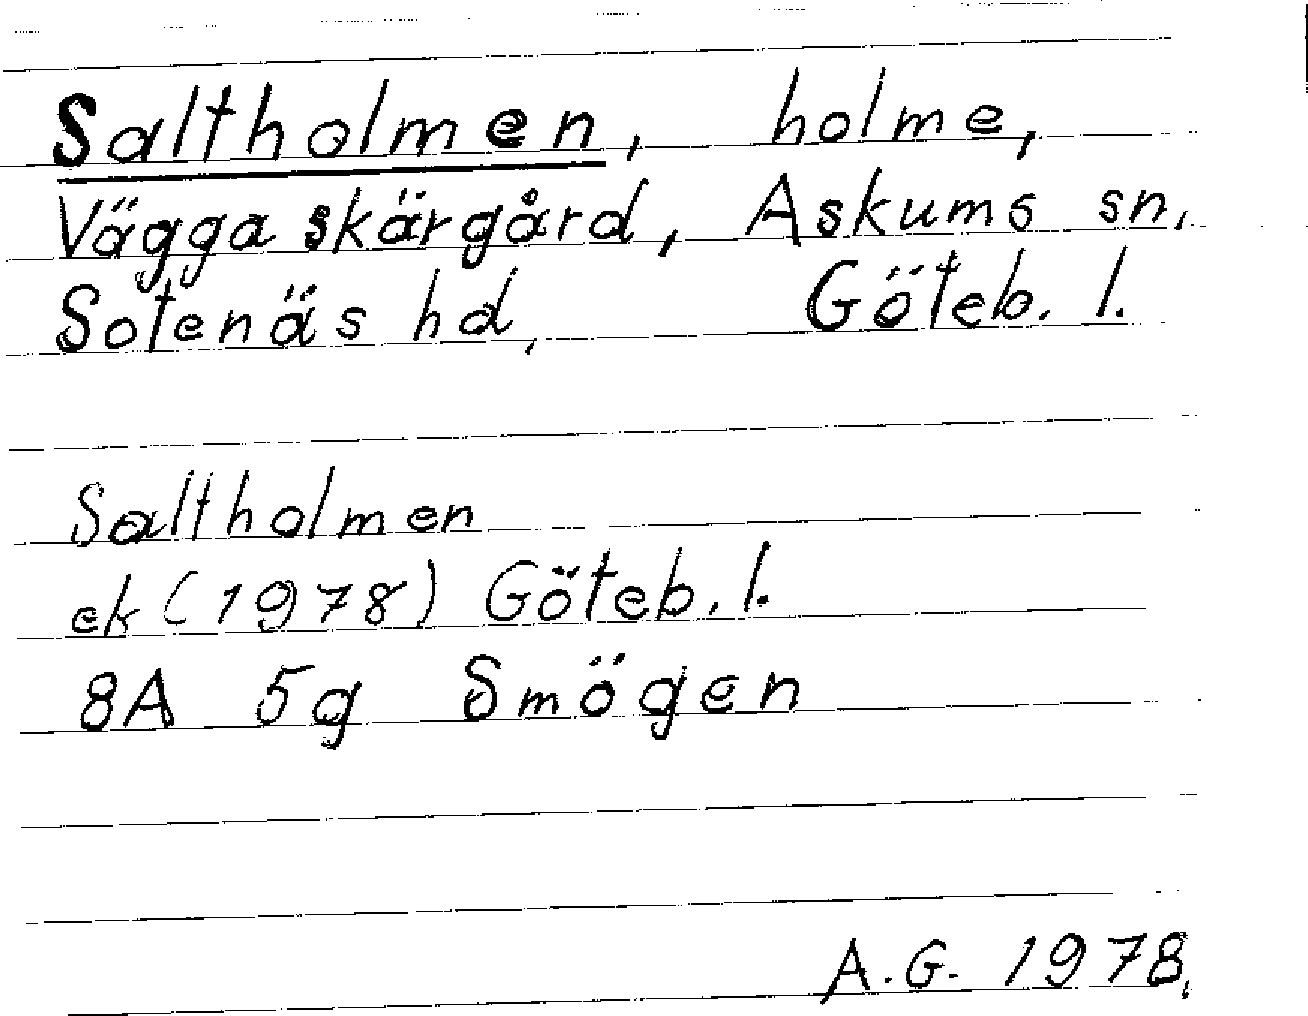 Saltholmen, holme,
Vägga skärgård, Askums sn.
Sotenäs hd, Göteb. l.
Saltholmen
ek (1978) Göteb. l.
8A 5g Smögen
A.G. 1978.